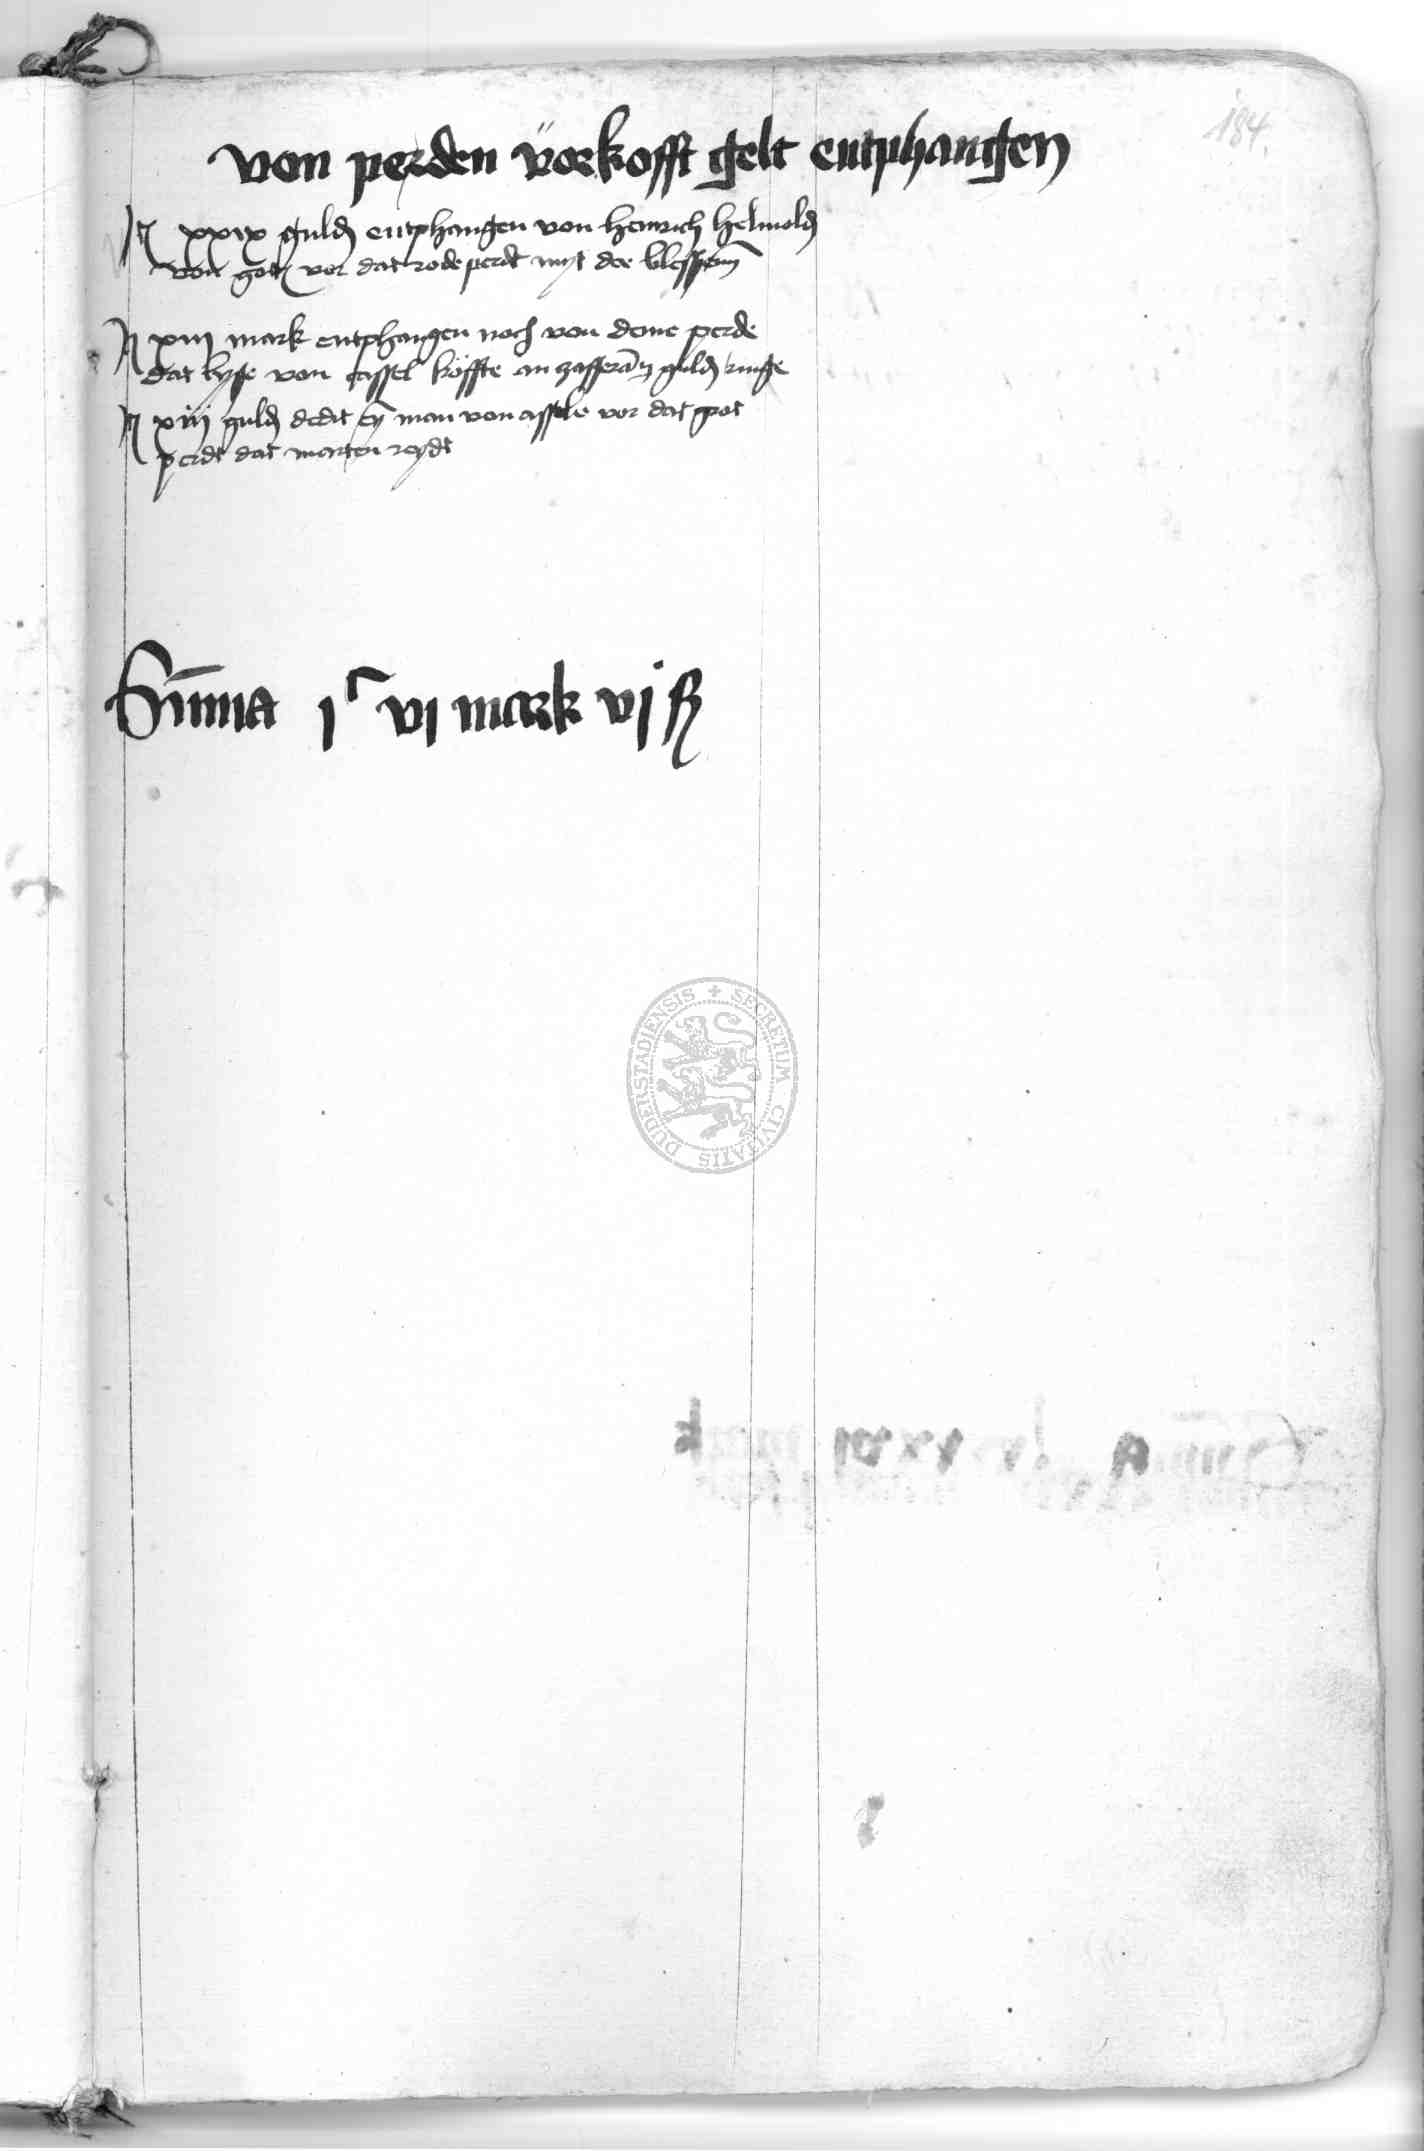 184.
von perden vorkofft gelt entphangen
It xxix guld entphangen von heinrich helmold
von gott vor dat rode perdt myt der blessen
It xiii mark entphangen noch von deme perde
dat kyse von cassel köffte an zafferan guld ringe
It xiii guld dedit ey man von assle vor dat grot
perdt dat marten reydt
Sūma ic vi mark vi ß
SECRETUM CIVITATIS DUDERSTADIENSIS